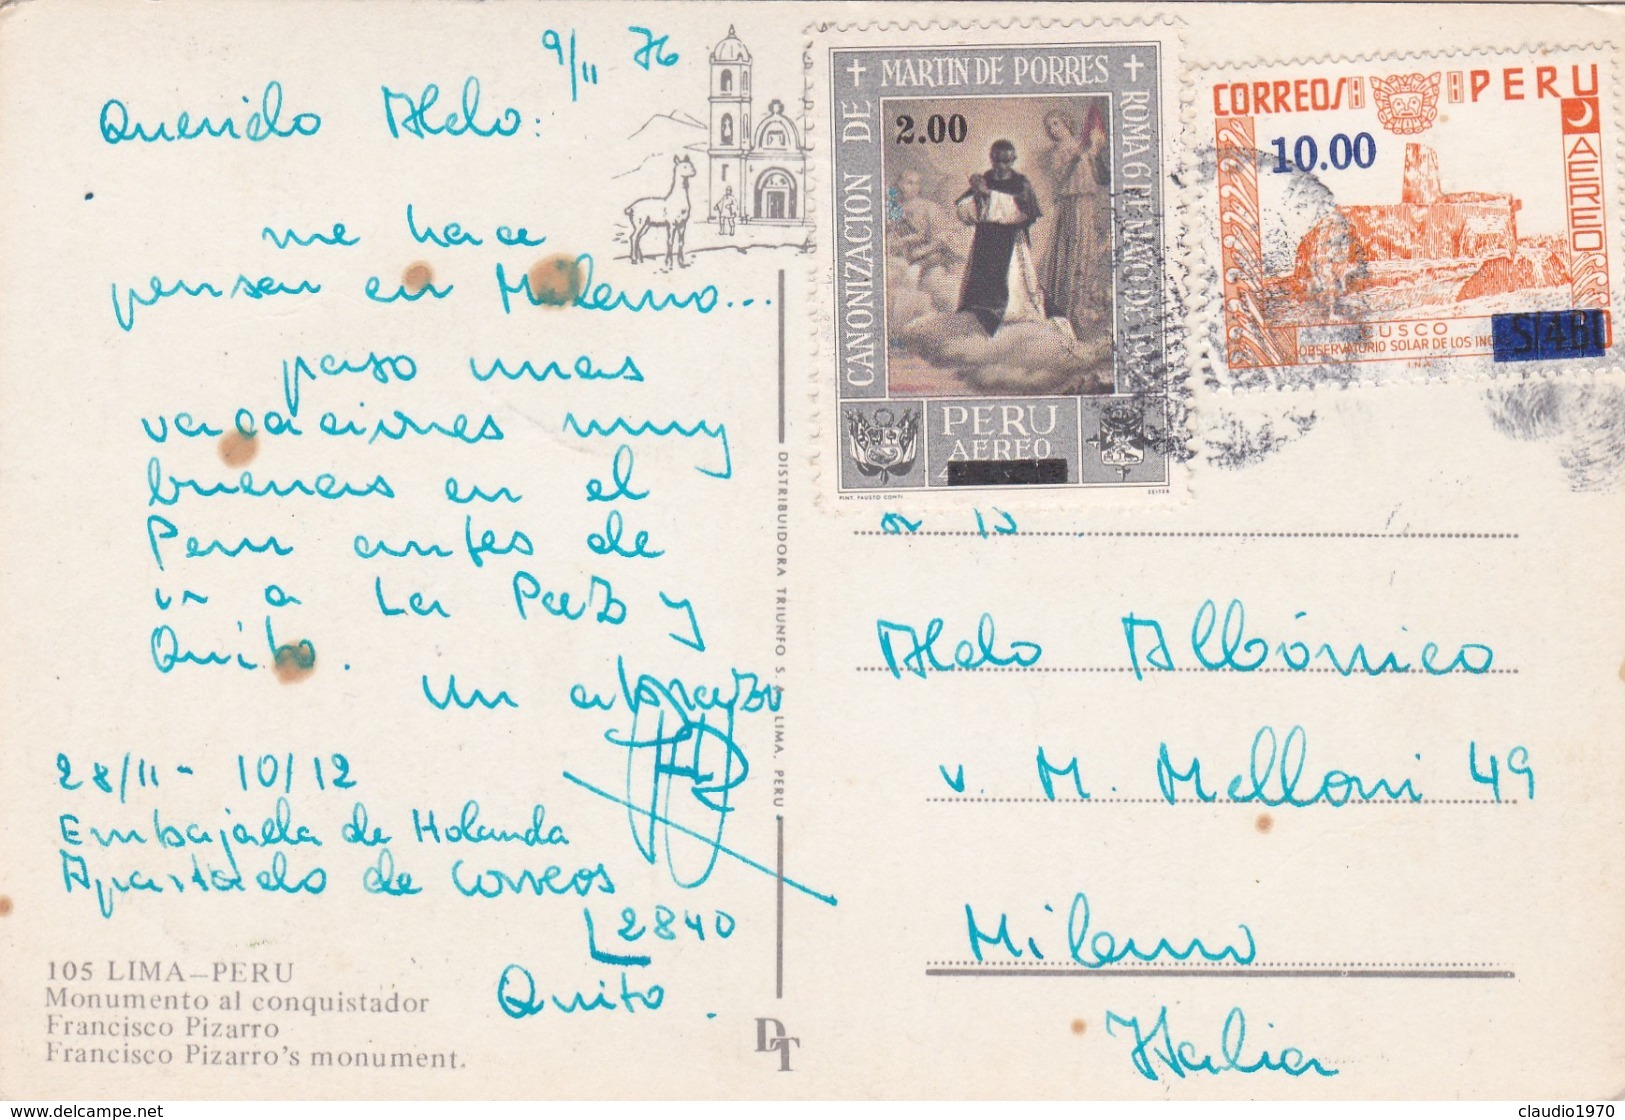 9/11 76
Querido Aldo:
me hace
pensar en Milano...
paso unas
vacaciones muy
buenas en el
Peru antes de
ir a La Paz y
Quito.
Un abrazo
28/11 - 10/12
Embajada de Holanda
Apartado de Correos
2840
Quito.
105 LIMA–PERU
Monumento al conquistador
Francisco Pizarro
Francisco Pizarro's monument.
DISTRIBUIDORA TRIUNFO S. A. LIMA, PERU
DT
CANONIZACION DE
MARTIN DE PORRES
ROMA 6 DE MAYO DE 1962
2.00
PERU
AEREO
PINT. FAUSTO CONTI
CORREOS PERU
AEREO
10.00
CUSCO
OBSERVATORIO SOLAR DE LOS INCAS
Aldo Albónico
v. M. Melloni 49
Milano
Italia
claudio1970